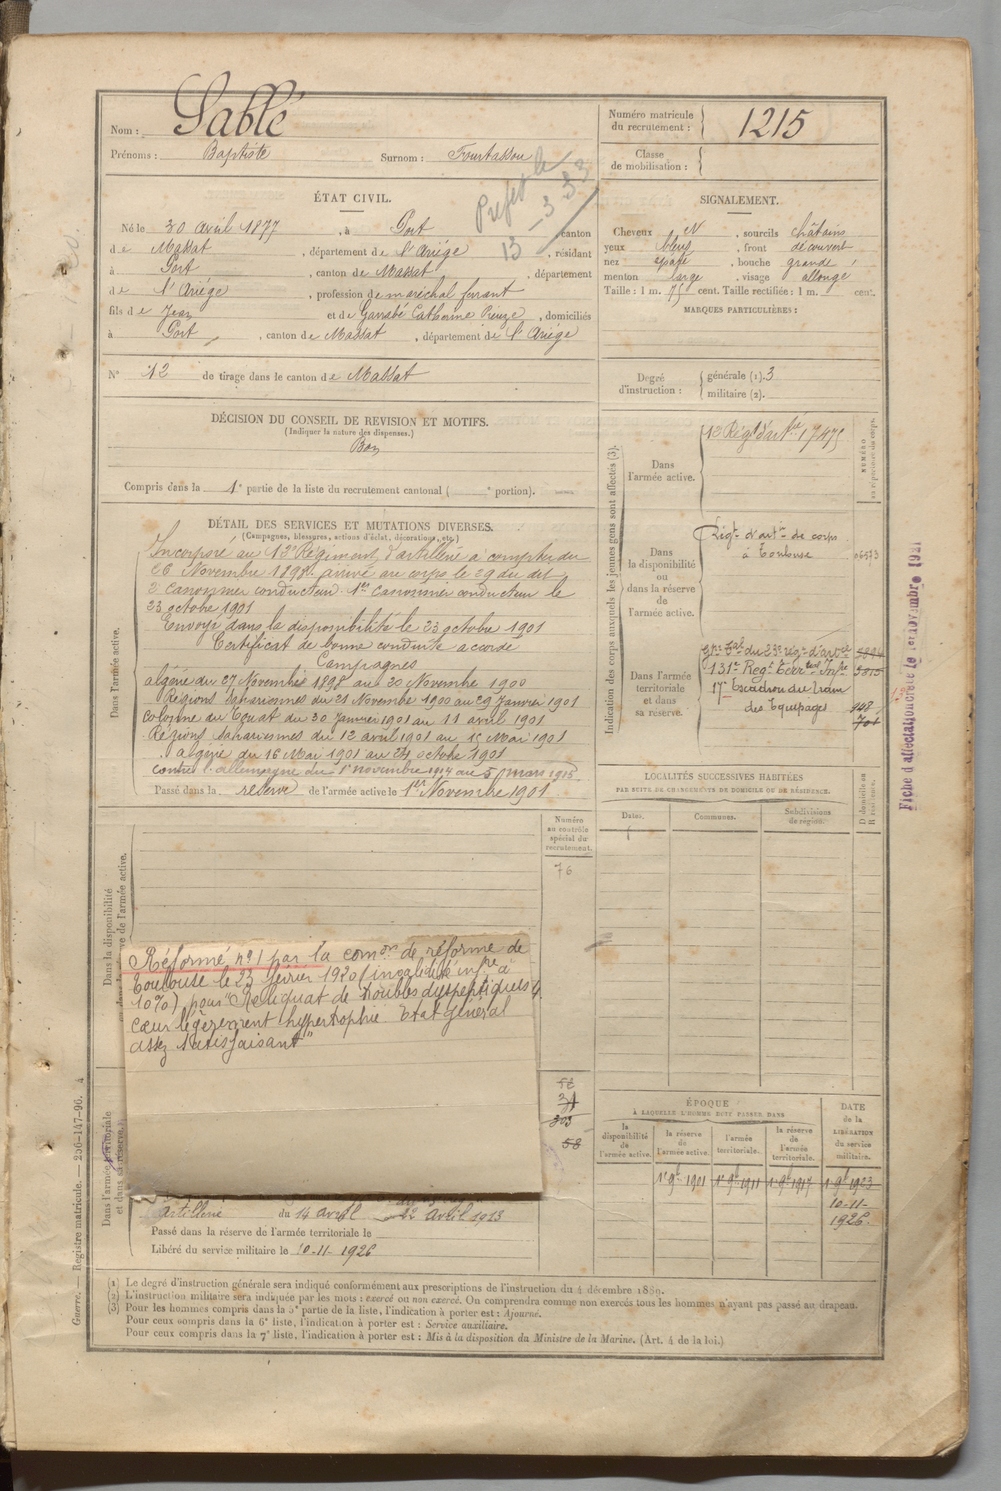 Nom : Sablé
Prénoms : Baptiste Surnom : Fourtassou
Numéro matricule du recrutement : 1215
Classe de mobilisation :
Préfet le
13-3-33
ÉTAT CIVIL.
Né le 20 avril 1877, à Port, canton
de Massat, département de l'Ariége, résidant
à Port, canton de Massat, département
de l'Ariége, profession de maréchal ferrant
fils de Jean et de Garrabé Catherine, domiciliés
à Port, canton de Massat, département de l'Ariége
N° 12 de tirage dans le canton de Massat
SIGNALEMENT.
Cheveux N, sourcils châtains
yeux bleus, front découvert
nez épaté, bouche grande
menton large, visage allongé
Taille : 1 m. 75 cent. Taille rectifiée : 1 m. cent.
MARQUES PARTICULIÈRES :
Degré d'instruction : générale (1). 3
militaire (2).
DÉCISION DU CONSEIL DE REVISION ET MOTIFS.
(Indiquer la nature des dispenses.)
Bon
Compris dans la 1e partie de la liste du recrutement cantonal ( e portion).
DÉTAIL DES SERVICES ET MUTATIONS DIVERSES.
(Campagnes, blessures, actions d'éclat, décorations, etc.)
Dans l'armée active.
Incorporé au 13e Régiment d'artillerie à compter du
26 Novembre 1898 arrivé au corps le 29 du dit
2e Canonnier conducteur. 1er Canonnier conducteur le
23 octobre 1901
Envoyé dans la disponibilité le 23 octobre 1901
Certificat de bonne conduite accordé
Campagnes
algérie du 27 Novembre 1898 au 20 Novembre 1900
Régions Sahariennes du 21 Novembre 1900 au 29 Janvier 1901
Colonne du Touat du 30 Janvier 1901 au 11 avril 1901
Régions Sahariennes du 12 avril 1901 au 15 Mai 1901
algérie du 16 Mai 1901 au 24 octobre 1901
contre l'allemagne du 1er novembre 1914 au 5 mars 1915
Passé dans la réserve de l'armée active le 1er Novembre 1901
Indication des corps auxquels les jeunes gens sont affectés (3).
NUMÉRO au répertoire du corps.
Dans l'armée active.
13 Régt d'artie 17475
Dans la disponibilité ou dans la réserve de l'armée active.
Régt d'artie de corps
à Toulouse
06573
Dans l'armée territoriale et dans sa réserve.
131e Regt Territorial Infie 5815
17e Escadron du Train
des Equipages 448
701
Fiche d'affectation créée le 1er novembre 1921
LOCALITÉS SUCCESSIVES HABITÉES
PAR SUITE DE CHANGEMENTS DE DOMICILE OU DE RÉSIDENCE.
Dates. Communes. Subdivisions de région. D domicile ou R résidence.
Numéro au contrôle spécial du recrutement.
76
Dans la disponibilité
de l'armée active.
Réformé n°1 par la comon de réforme de
Toulouse le 23 février 1920 (invalidité infre à
10%) pour "Reliquat de troubles dyspeptiques
cœur légèrement hypertrophié Etat Général
assez satisfaisant"
Dans l'armée territoriale et dans sa réserve.
303
58
artillerie du 14 avril 22 avril 1913
Passé dans la réserve de l'armée territoriale le
Libéré du service militaire le 10-11-1926
ÉPOQUE
À LAQUELLE L'HOMME DOIT PASSER DANS
la disponibilité de l'armée active. la réserve de l'armée active. l'armée territoriale. la réserve de l'armée territoriale.
DATE de la LIBÉRATION du service militaire.
1er 9bre 1901 1er 9bre 1911 1er 9bre 1917 1er 9bre 1923
10-11-1926
(1) Le degré d'instruction générale sera indiqué conformément aux prescriptions de l'instruction du 4 décembre 1889.
(2) L'instruction militaire sera indiquée par les mots : exercé ou non exercé. On comprendra comme non exercés tous les hommes n'ayant pas passé au drapeau.
(3) Pour les hommes compris dans la 5e partie de la liste, l'indication à porter est : Ajourné.
Pour ceux compris dans la 6e liste, l'indication à porter est : Service auxiliaire.
Pour ceux compris dans la 7e liste, l'indication à porter est : Mis à la disposition du Ministre de la Marine. (Art. 4 de la loi.)
Guerre. — Registre matricule. — 256-147-96. 4